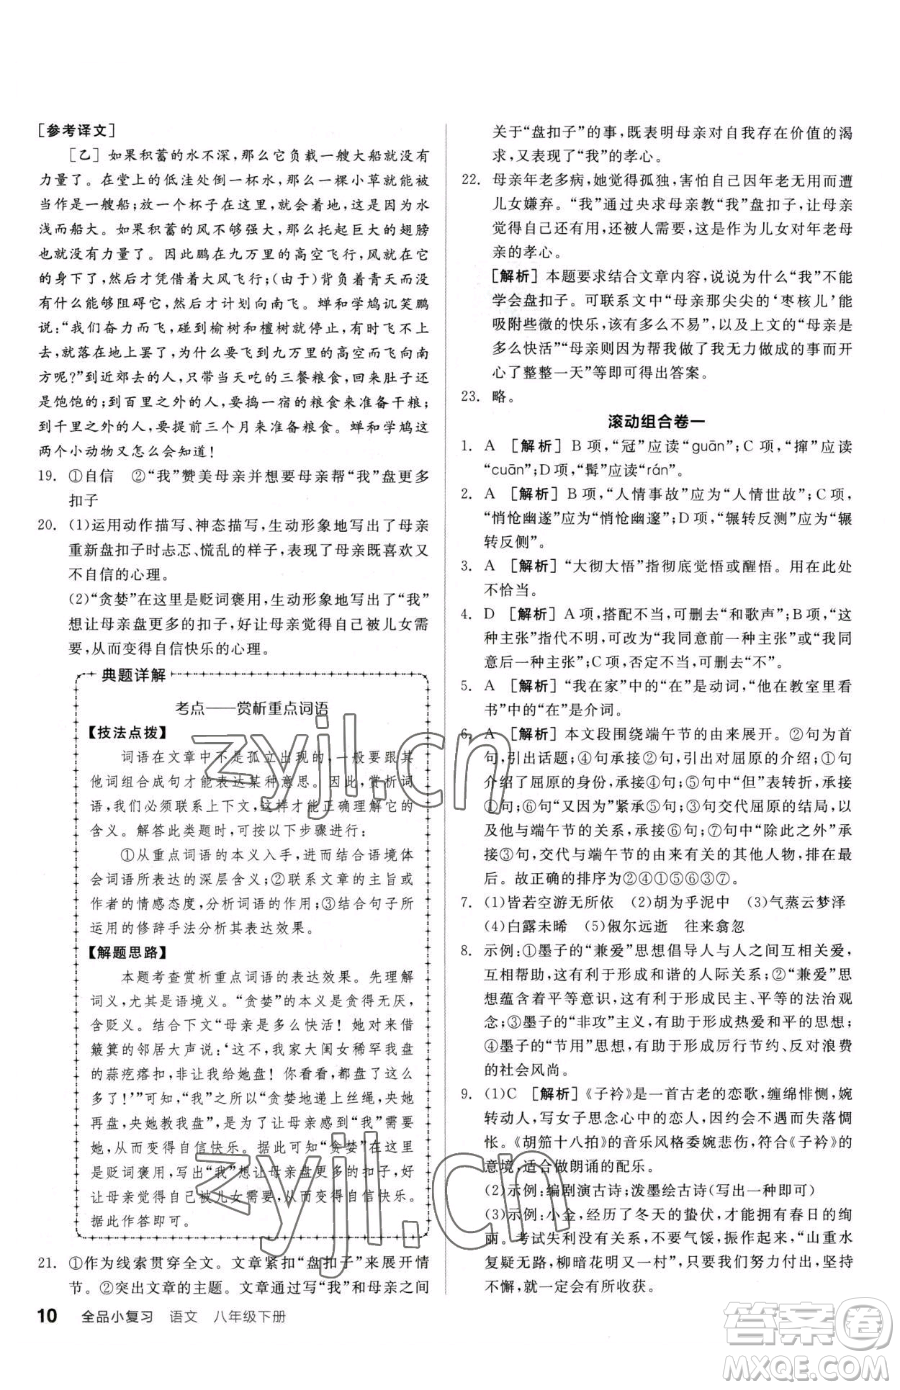 [参考译文]
[乙]如果积蓄的水不深，那么它负载一艘大船就没有
力量了。在堂上的低洼处倒一杯水，那么一棵小草就能成
为一艘船；放一个杯子在这里，就会着地，这是因为水
浅而船大。如果积蓄的风不够强大，那么托起巨大的翅膀
也就没有力量了。因此鹏在九万里的高空飞行，风就在它
的下面了，然后才凭借着大风飞行；(由于)背负着青天而没
有什么能够阻碍它，然后才计划向南飞。蝉和学鸠讥笑鹏
说：“我们奋力而飞，碰到榆树和檀树就停止，有时飞不上
去，落在地上罢了，为什么要到九万里的高空而飞往南方
呢？”到近郊去的人，只带当天吃的三餐粮食，回来肚子还
是饱饱的；到百里之外的人，要捣一宿的粮食来准备干粮；
到千里之外的人，要提前三个月来准备粮食。蝉和学鸠这
两个小动物又怎么会知道！
19. ①自信　②“我”赞美母亲并想要母亲帮“我”盘更多
扣子
20. (1)运用动作描写、神态描写，生动形象地写出了母亲
重新盘扣子时忐忑、慌乱的样子，表达了母亲既喜欢又
不自信的心理。
(2)“贪婪”在这里是贬词褒用，生动形象地写出了“我”
想让母亲盘更多的扣子，好让母亲觉得自己被儿女需
要，从而变得自信快乐的心理。
典题详解
考点——赏析重点词语
【技法点拨】
词语在文章中不是孤立出现的，一般要跟其
他词组合成句才能表达某种意思。因此，赏析词
语，我们必须联系上下文，这样才能正确理解它的
含义。解答此类题时，可按以下步骤进行：
①从重点词语的本义入手，进而结合语境体
会词语所表达的深层含义；②联系文章的主题和
作者的情感态度，分析词语的作用；③结合句子所
运用的修辞手法分析其表达效果。
【解题思路】
本题考查赏析重点词语的表达效果。先理解
词义，尤其是语境义。“贪婪”的本义是贪得无厌，
含贬义。结合下文“母亲是多么快活！她对来借
簸箕的邻居大声说：‘不，我家大闺女稀罕我盘
的蒜疙瘩扣，非让我盘，你看我还能盘！’盘好了，
还能盘！有时明明够了，我还是贪婪地上端，央她
再盘，央她教我……”可知，“我”之所以“贪婪”，是
为了让母亲尽可能多地帮助“我”盘扣子，让母亲
从中获得自信快乐。据此可知“贪婪”在这里是
贬词褒用，写出了“我”想让母亲盘更多的扣子，好
让母亲觉得自己被儿女需要，从而变得自信快乐。
据此作答即可。
21. ①作为线索贯穿全文。文章紧紧围绕“盘扣子”来展开情
节。②突出文章的主题。文章通过叙写“我”和母亲之间
关于“盘扣子”的事，既表明母亲对自我存在价值的渴
求，又表现了“我”的孝心。
22. 母亲年老多病，她觉得孤独，害怕自己因年老无用而遭
儿女嫌弃。“我”通过央求母亲教“我”盘扣子，让母亲
觉得自己有用，还被儿女需要，表达了作为儿女对年老母
亲的孝心。
[解析]　本题要求结合文章内容，说说为什么“我”不能
学会盘扣子。可联系文中“母亲那尖尖的‘枣核儿’能
吸附些微的快乐，该有多么不易”，以及上文的“母亲是
多么快活”“母亲则因为帮助了我无力做成的事而开
心了整整一天”等即可得出答案。
23. 略。
滚动组合卷一
1. A　[解析]　B项，“冠”应读“guān”；C项，“撺”应读
“cuān”；D项，“髯”应读“rán”。
2. A　[解析]　B项，“人情事故”应为“人情世故”；C项，
“悄怆幽遂”应为“悄怆幽邃”；D项，“辗转反测”应为“辗
转反侧”。
3. A　[解析]　“大彻大悟”指彻底觉悟或醒悟。用在此处
不恰当。
4. D　[解析]　A项，搭配不当，可删去“和歌声”；B项，“这
种主张”指代不明，可改为“我同意前一种主张”或“我同
意后一种主张”；C项，否定不当，可删去“不”。
5. A　[解析]　“我在家”中的“在”是动词，“他在教室里看
书”中的“在”是介词。
6. A　[解析]　本文段围绕端午节的由来展开。②句为首
句，引出话题；④句承接②句，引出对屈原的介绍；①句
介绍了屈原的身份，承接④句；⑥句中的“但”表转折，与
①句形成对比，“又”紧承⑤句；③句交代屈原的结局，以
及他与端午节的关系，承接⑥句；⑦句中“除此之外”承
接③句，继续交代与端午节的由来有关的其他三种说
法。故正确的排序为②④①⑤⑥③⑦。
7. (1)皆若空游无所依　(2)胡为乎泥中　(3)气蒸云梦泽
(4)白露未晞　(5)俶尔远逝　往来翕忽
8. 示例：①墨子的“兼爱”思想倡导人与人之间互相关爱，
互相帮助，这有利于形成和谐的人际关系；②“兼爱”思想
包含着平等意识，有利于形成民主、平等的法治观
念；③墨子的“非攻”主张，有利于形成热爱和平的社会
共识；④墨子的“节用”思想，有利于形成节约、反对浪费
的社会风尚。
9. (1)C　[解析]　《子衿》是一首古老的恋歌，缠绵悱恻，婉
转动人，写女子思念心中的恋人，因相会不成而失落惆
怅。《胡笳十八拍》的音乐风格委婉悲伤，符合《子衿》的
意境，适合做朗诵的配乐。
(2)示例：编剧演古诗；泼墨绘古诗(写出一种即可)
(3)示例：小金，经历了冬天的蛰伏，才拥有春日的绚
丽。考试失利没有关系，不要气馁，振作起来，“山重水
复疑无路，柳暗花明又一村”，我相信你只要努力，坚持
不懈，就一定会有所收获。
10　全品小复习　语文　八年级下册
zyjl.cn
zyjl.cn
答案圈
MXQE.COM